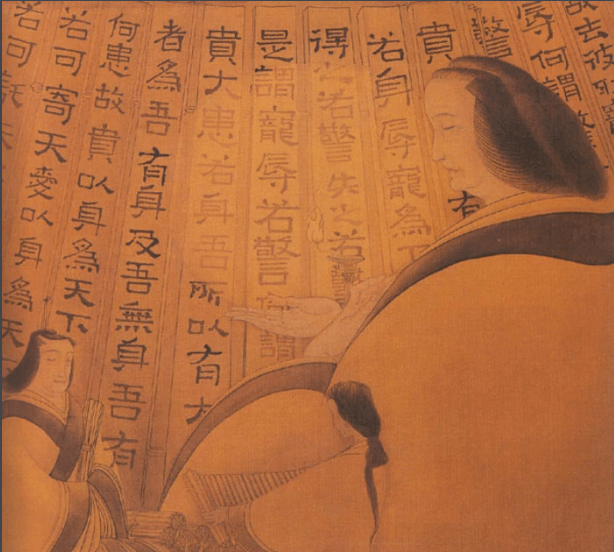 故去彼
辱何謂
警
貴
有
若身辱寵為下
得之若警失之若警
是謂寵辱若警何謂
貴大患若身吾所以有大
者為吾有身及吾無身吾有
何患故貴以身為天下
若可寄天愛以身為天
若可託天